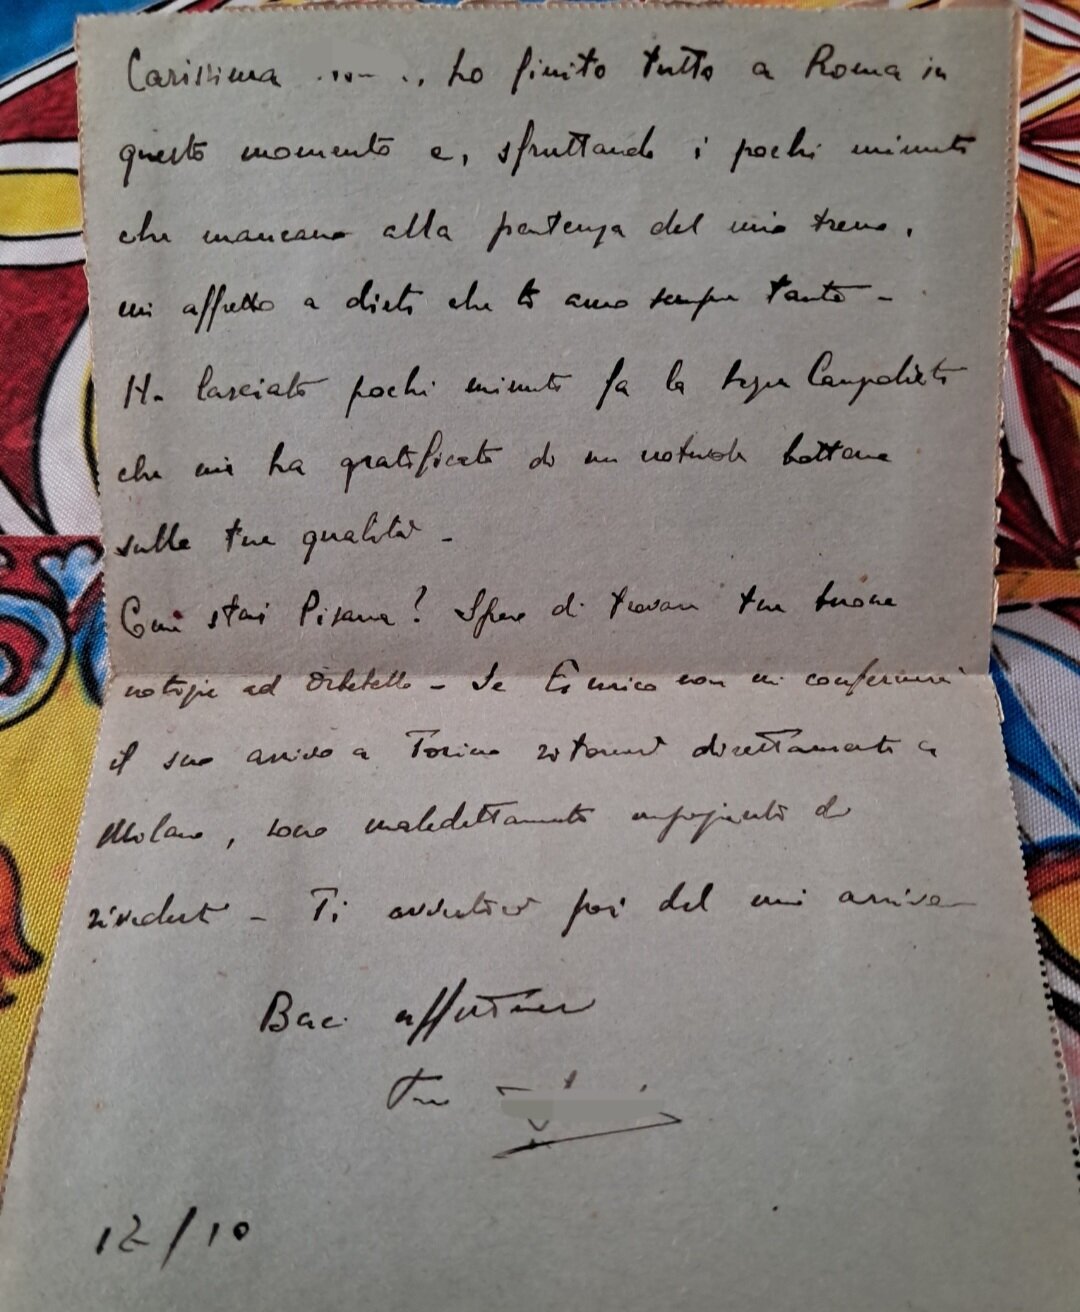 Carissima , ho finito tutto a Roma in
questo momento e, sfruttando i pochi minuti
che mancano alla partenza del mio treno,
mi affretto a dirti che ti amo sempre tanto -
Ho lasciato pochi minuti fa la Campolieto
che mi ha gratificato di un notevole bottone
sulle tue qualità -
Come stai Pisana? Spero di trovare tue buone
notizie ad Orbetello - Se Enrico non mi confermerà
il suo arrivo a Torino ritornerò direttamente a
Milano, sono maledettamente impaziente di
rivederti - Ti avvertirò poi del mio arrivo -
Baci
Tuo
12/10